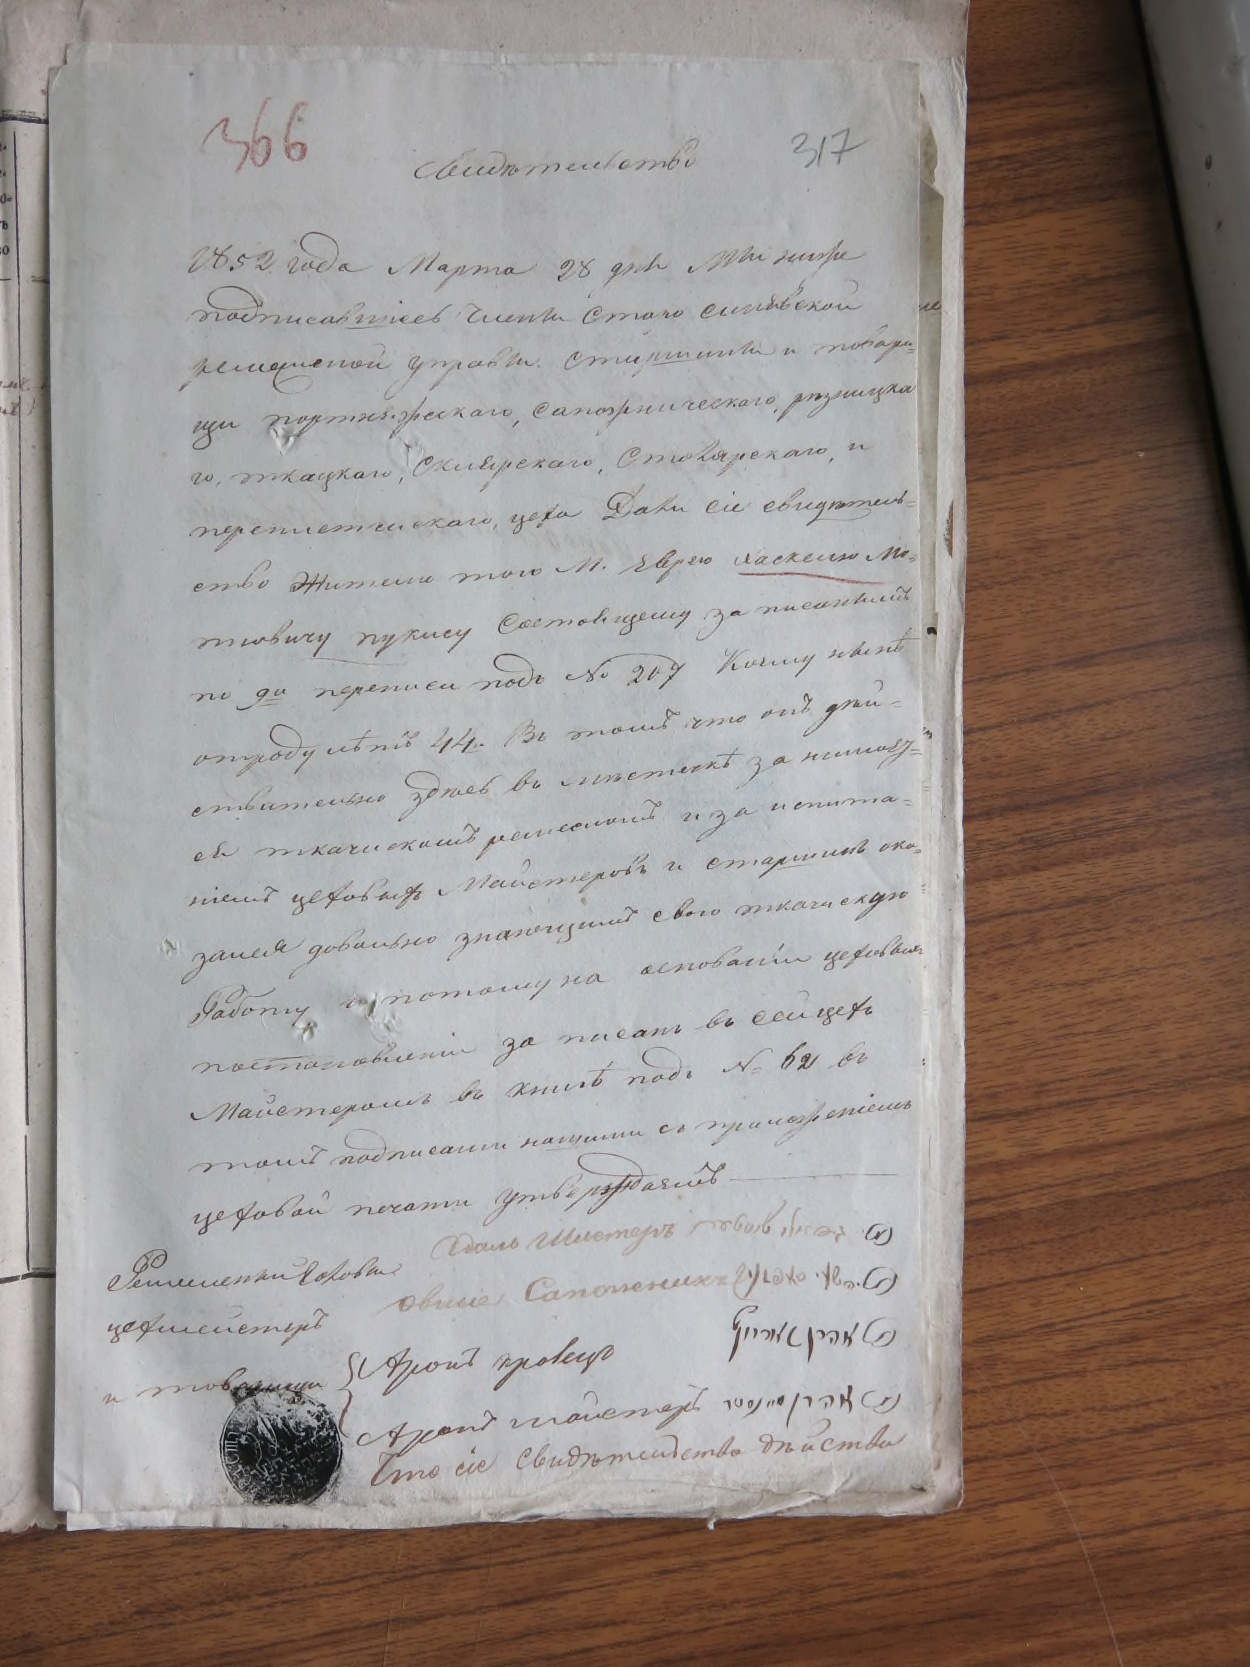 366
317
Свидѣтельство
1852 года Марта 28 дня Мы ниже
подписавшіесь Члены Старо синявской
ремесленой управы. Старшины и товари-
щи портняжескаго, Сапожническаго, рѣзницка
го, ткацкаго, Склярскаго, Столярскаго, и
переплетческаго, цеха Дали сіе свидѣтель-
ство Жителю того М. Еврею Хаскелю Мо-
тновичу Состоящему за писаннымъ
по 9й переписи подъ № 207 Коему нынѣ
отроду лѣтъ 44. Въ томъ что онъ дѣй-
ствительно здѣсь въ мѣстечкѣ за
ся ткаческомъ ремесломъ и за испыта-
ніемъ цеховыхъ Майстеровъ и старшинъ ока-
зался довольно знающимъ свою ткаческую
Работу и потому на основаніи цеховыхъ
постановленіи за писанъ въ сей цехъ
Майстеромъ въ книгѣ подъ № 62 въ
томъ подписами нашими съ приложеніемъ
цеховой печати утверждаемъ
Ремесленый Голова
Шистеръ
цехмейстеръ
Сапожникъ
и товарищи
Аронъ кравецъ
Аронъ майстеръ
Что сіе Свидѣтельство дѣйстви